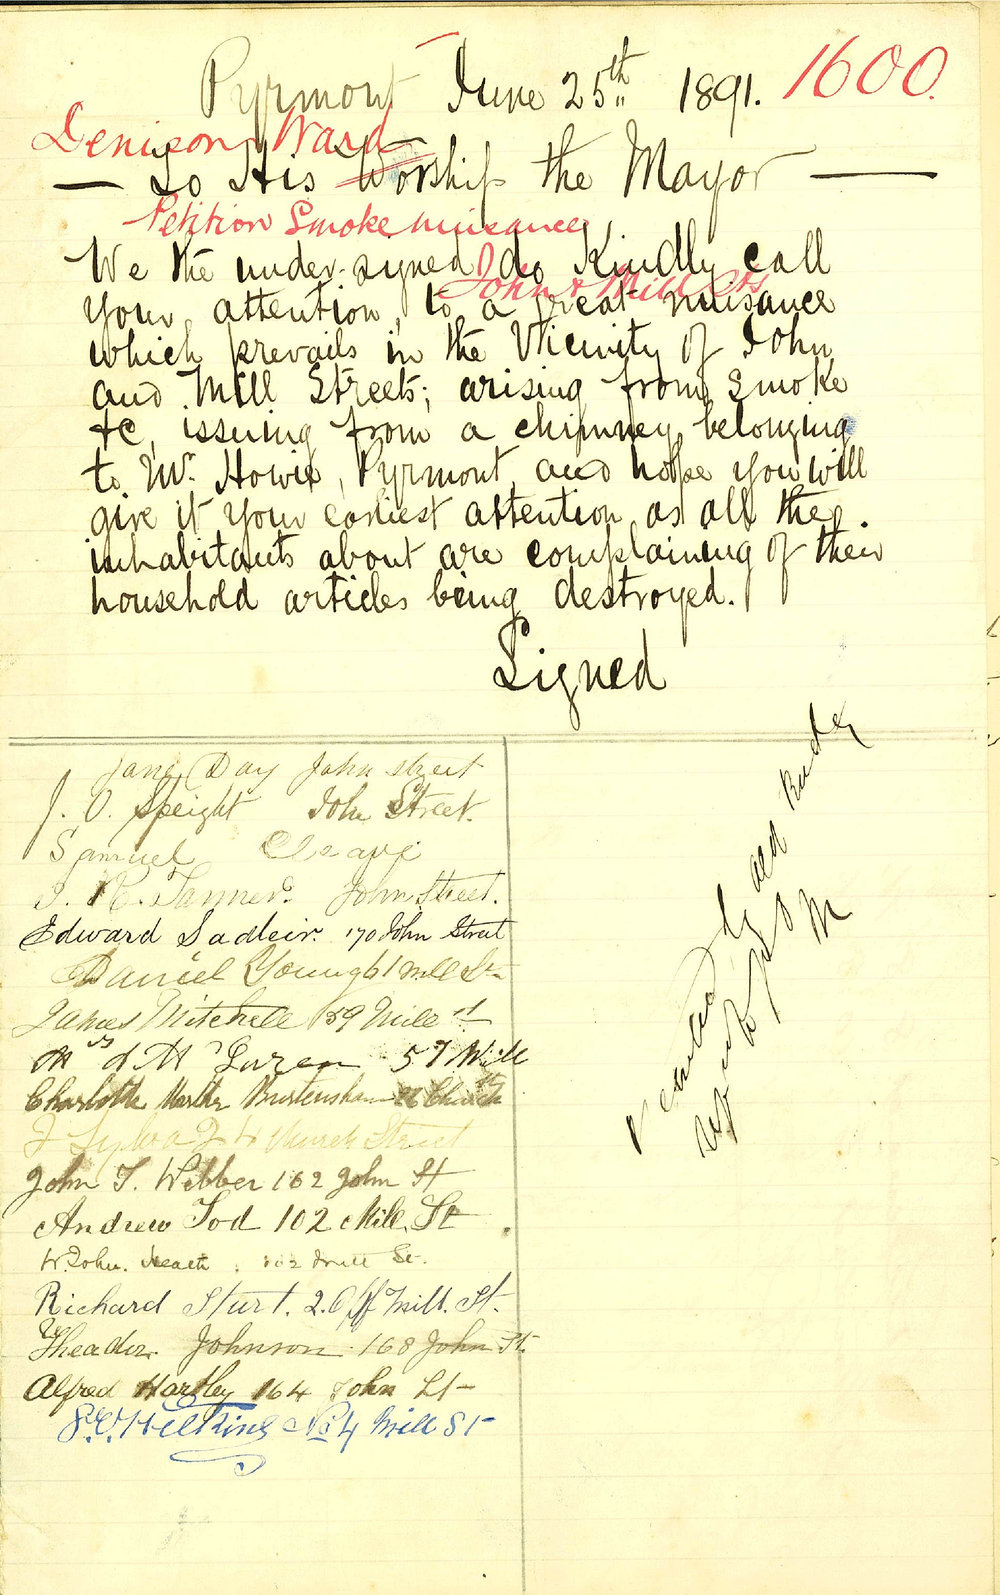 Pyrmont June 25th 1891. 1600.
Denison Ward
To His Worship the Mayor
Petition Smoke nuisance
We the under-signed do Kindly call
John & Mill Sts
your attention, to a great nuisance
which prevails in the Vicinity of John
and Mill Streets; arising from Smoke
&c, issuing from a chimney belonging
to Mr. Howie, Pyrmont, and hope you will
give it your earliest attention as all the
inhabitants about are complaining of their
household articles being destroyed.
Signed
Jane Day John street
J. O. Speight John Street.
Samuel
J. R. Tanner. John Street.
Edward Sadleir. 170 John Street
Daniel Young 61 Mill St
James Mitchell 159 Mill st
57 Mill
Charlotte Martha Church
Church Street
John T. Webber 162 John St
Andrew Tod 102 Mill St
W. John. Heath. 102 Mill St.
Richard Sturt. 2. Off Mill. St.
Johnson 168 John St.
Alfred Hartley 164 John St
No 4 Mill St